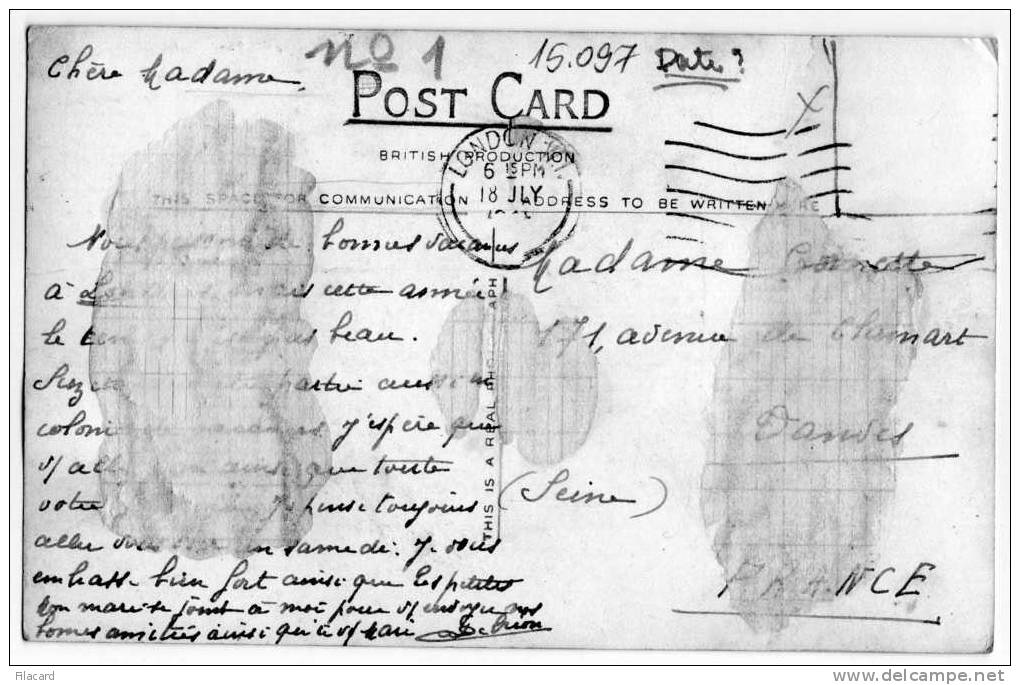 nº 1
15.097
Date ?
X
Chère Madame
POST CARD
BRITISH PRODUCTION
LONDON W.1.
6 15PM
18 JLY
THIS SPACE FOR COMMUNICATION
ADDRESS TO BE WRITTEN HERE
Nous passons de bonnes vacances
à Londres, mais cette année
le temps pas beau.
partie aussi en
colonie de vacances. J'espère que
v/ allez bien ainsi que toute
votre Je pense toujours
aller vous voir un samedi. Je vous
embrasse bien fort ainsi que les petites
Mon mari se joint à moi pour v/ envoyer nos
bonnes amitiés ainsi qu'à v/ mari
THIS IS A REAL PHOTOGRAPH
Madame
171, avenue de
(Seine)
FRANCE
Filacard
delcampe.net